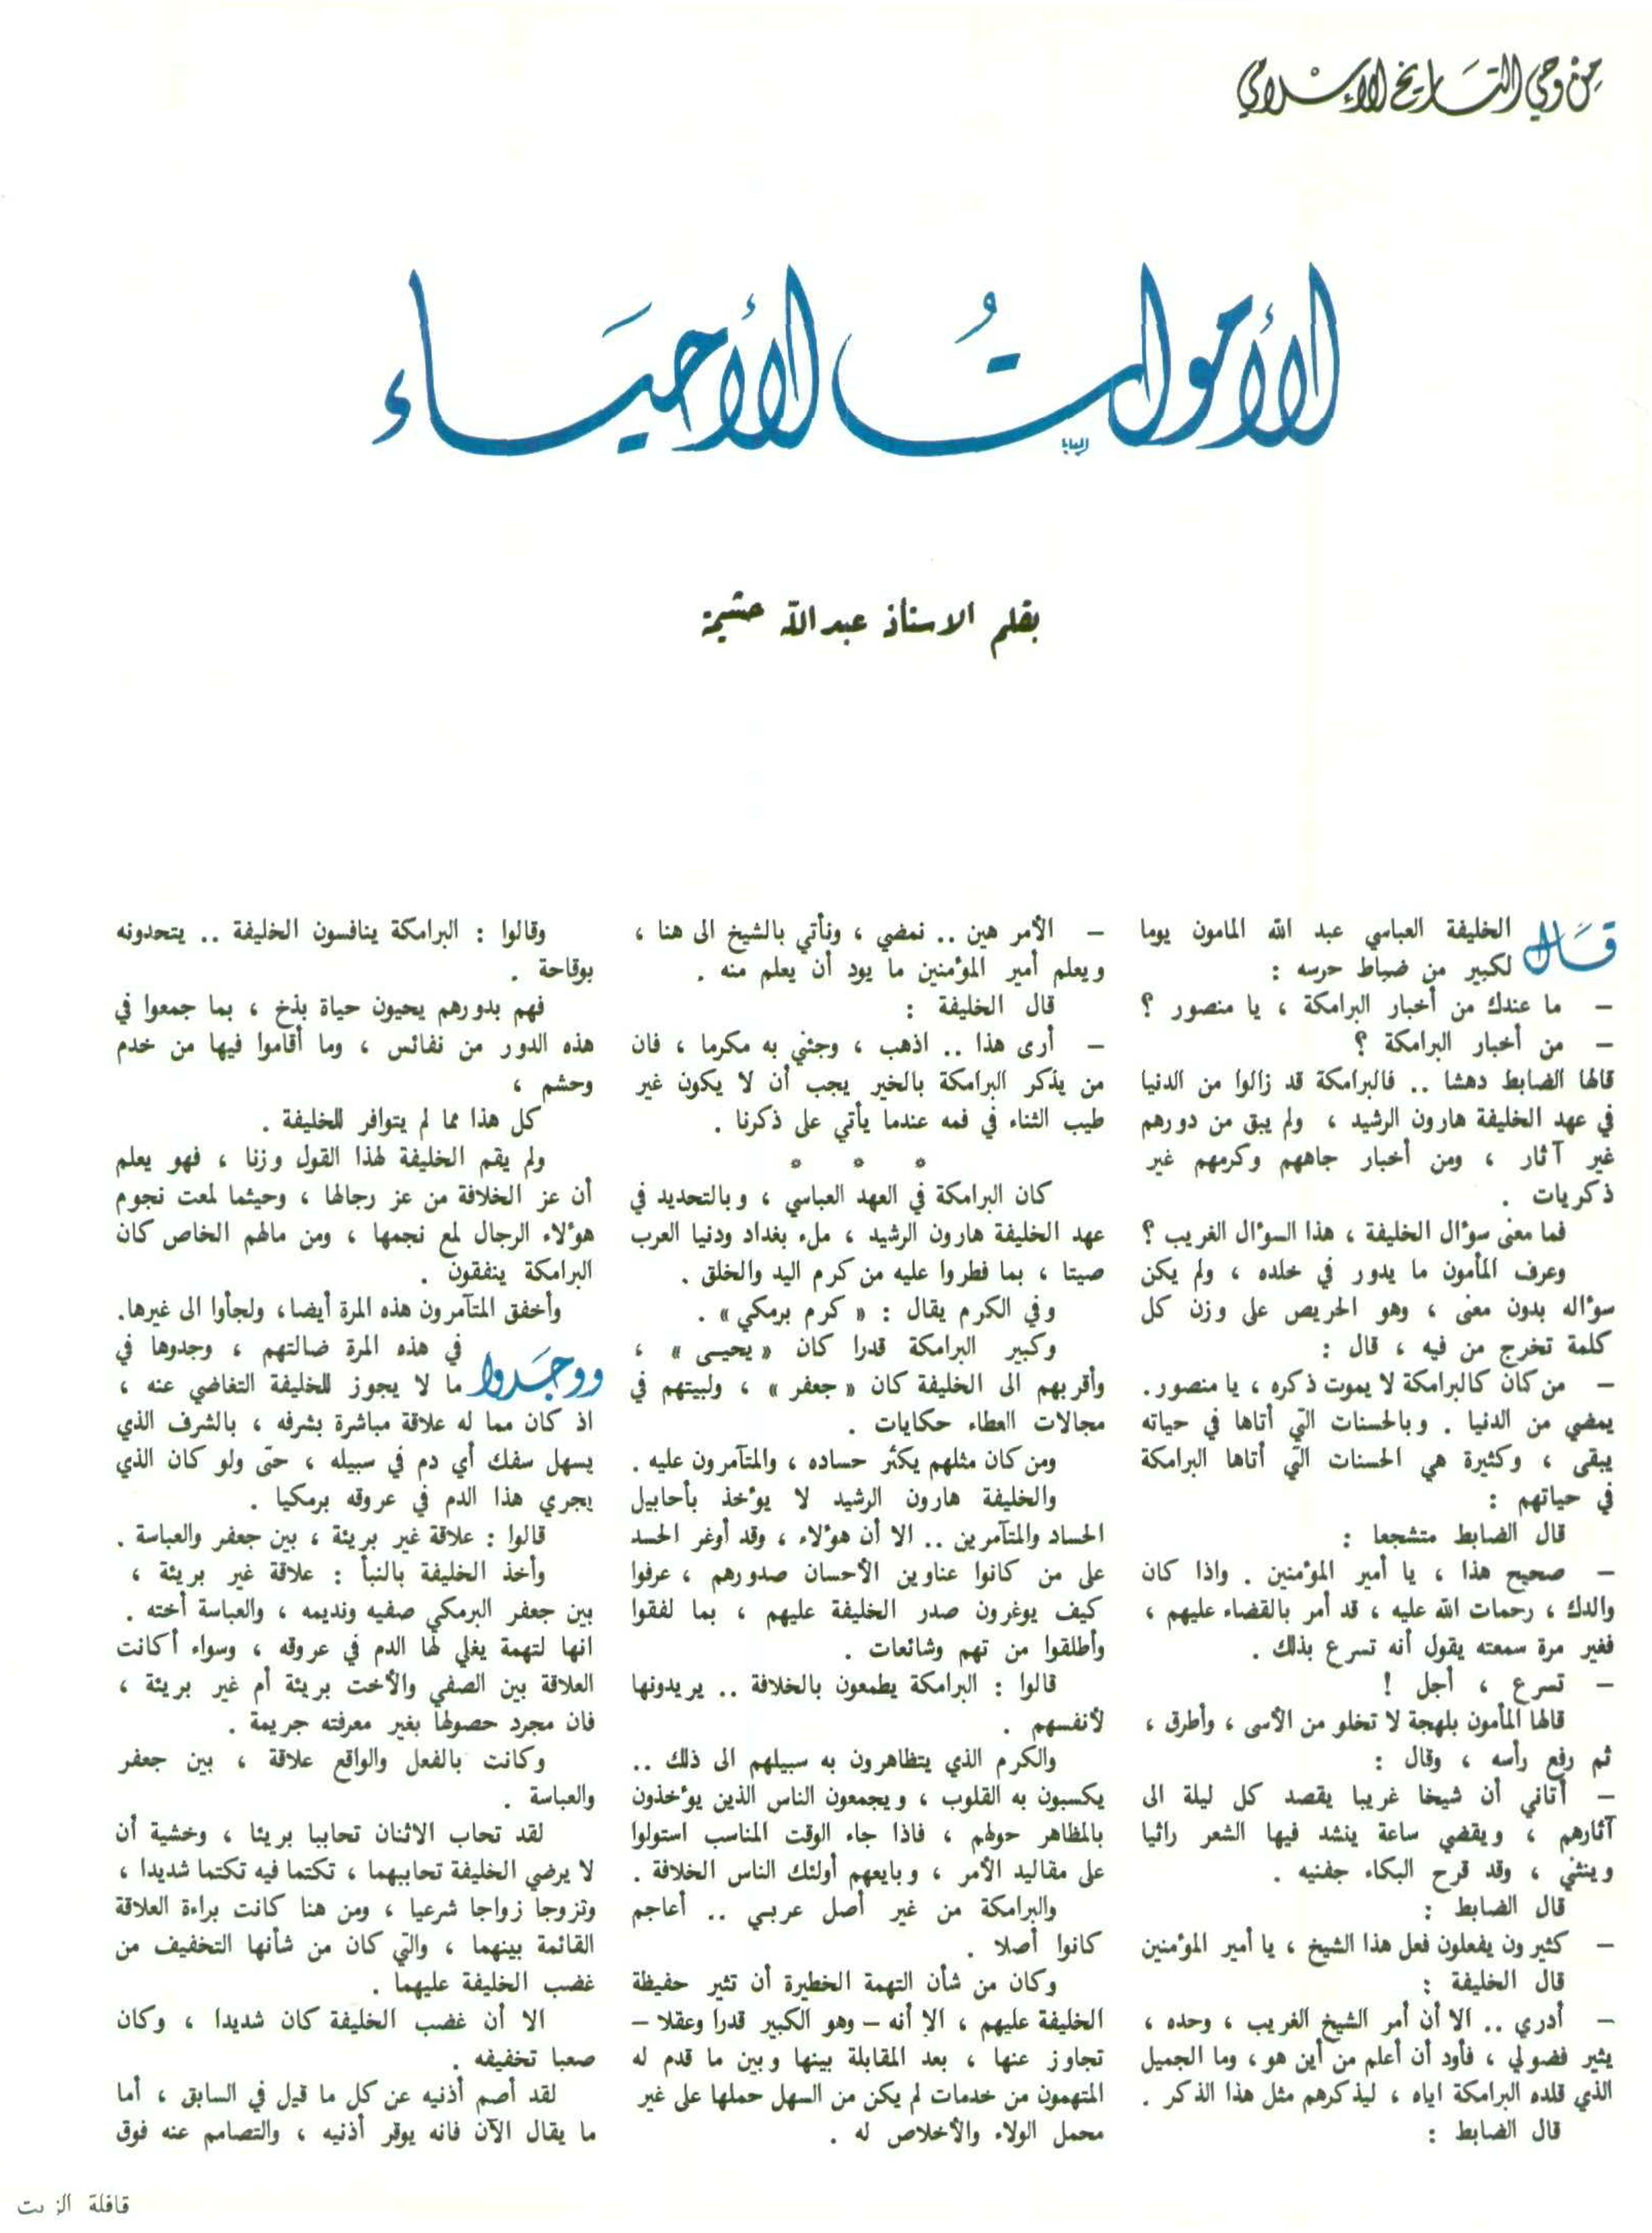 من وحي التاريخ الإسلامي
الأموات الأحياء
بقلم الاستاذ عبد الله حشيمة
قال الخليفة العباسي عبد الله المامون يوما
لكبير من ضباط حرسه :
– ما عندك من أخبار البرامكة ، يا منصور ؟
– من أخبار البرامكة ؟
قالها الضابط دهشا .. فالبرامكة قد زالوا من الدنيا
في عهد الخليفة هارون الرشيد ، ولم يبق من دورهم
غير آثار ، ومن أخبار جاههم وكرمهم غير
ذكريات .
فما معنى سؤال الخليفة ، هذا السؤال الغريب ؟
وعرف المأمون ما يدور في خلده ، ولم يكن
سؤاله بدون معنى ، وهو الحريص على وزن كل
كلمة تخرج من فيه ، قال :
– من كان كالبرامكة لا يموت ذكره ، يا منصور .
يمضي من الدنيا . وبالحسنات التي أتاها في حياته
يبقى ، وكثيرة هي الحسنات التي أتاها البرامكة
في حياتهم :
قال الضابط متشجعا :
– صحيح هذا ، يا أمير المؤمنين . واذا كان
والدك ، رحمات الله عليه ، قد أمر بالقضاء عليهم ،
فغير مرة سمعته يقول أنه تسرع بذلك .
– تسرع ، أجل !
قالها المأمون بلهجة لا تخلو من الأسى ، وأطرق ،
ثم رفع رأسه ، وقال :
– أتاني أن شيخا غريبا يقصد كل ليلة الى
آثارهم ، ويقضي ساعة ينشد فيها الشعر راثيا
وينثني ، وقد قرح البكاء جفنيه .
قال الضابط :
– كثيرون يفعلون فعل هذا الشيخ ، يا أمير المؤمنين
قال الخليفة :
– أدري .. الا أن أمر الشيخ الغريب ، وحده ،
يثير فضولي ، فأود أن أعلم من أين هو ، وما الجميل
الذي قلده البرامكة اياه ، ليذكرهم مثل هذا الذكر .
قال الضابط :
– الأمر هين .. نمضي ، ونأتي بالشيخ الى هنا ،
ويعلم أمير المؤمنين ما يود أن يعلم منه .
قال الخليفة :
– أرى هذا .. اذهب ، وجئني به مكرما ، فان
من يذكر البرامكة بالخير يجب أن لا يكون غير
طيب الثناء في فمه عندما يأتي على ذكرنا .
* * *
كان البرامكة في العهد العباسي ، وبالتحديد في
عهد الخليفة هارون الرشيد ، ملء بغداد ودنيا العرب
صيتا ، بما فطروا عليه من كرم اليد والخلق .
وفي الكرم يقال : « كرم برمكي » .
وكبير البرامكة قدرا كان « يحيى » ،
وأقربهم الى الخليفة كان « جعفر » ، ولبيتهم في
مجالات العطاء حكايات .
ومن كان مثلهم يكثر حساده ، والمتآمرون عليه .
والخليفة هارون الرشيد لا يؤخذ بأحابيل
الحساد والمتآمرين .. الا أن هؤلاء ، وقد أوغر الحسد
على من كانوا عناوين الأحسان صدورهم ، عرفوا
كيف يوغرون صدر الخليفة عليهم ، بما لفقوا
وأطلقوا من تهم وشائعات .
قالوا : البرامكة يطمعون بالخلافة .. يريدونها
لأنفسهم .
والكرم الذي يتظاهرون به سبيلهم الى ذلك ..
يكسبون به القلوب ، ويجمعون الناس الذين يؤخذون
بالمظاهر حولهم ، فاذا جاء الوقت المناسب استولوا
على مقاليد الأمر ، وبايعهم أولئك الناس الخلافة .
والبرامكة من غير أصل عربي .. أعاجم
كانوا أصلا .
وكان من شأن التهمة الخطيرة أن تثير حفيظة
الخليفة عليهم ، الا أنه – وهو الكبير قدرا وعقلا –
تجاوز عنها ، بعد المقابلة بينها وبين ما قدم له
المتهمون من خدمات لم يكن من السهل حملها على غير
محمل الولاء والأخلاص له .
وقالوا : البرامكة ينافسون الخليفة .. يتحدونه
بوقاحة .
فهم بدورهم يحيون حياة بذخ ، بما جمعوا في
هذه الدور من نفائس ، وما أقاموا فيها من خدم
وحشم ،
كل هذا مما لم يتوافر للخليفة .
ولم يقم الخليفة لهذا القول وزنا ، فهو يعلم
أن عز الخلافة من عز رجالها ، وحيثما لمعت نجوم
هؤلاء الرجال لمع نجمها ، ومن مالهم الخاص كان
البرامكة ينفقون .
وأخفق المتآمرون هذه المرة أيضا ، ولجأوا الى غيرها .
ووجدوا في هذه المرة ضالتهم ، وجدوها في
ما لا يجوز للخليفة التغاضي عنه ،
اذ كان مما له علاقة مباشرة بشرفه ، بالشرف الذي
يسهل سفك أي دم في سبيله ، حتى ولو كان الذي
يجري هذا الدم في عروقه برمكيا .
قالوا : علاقة غير بريئة ، بين جعفر والعباسة .
وأخذ الخليفة بالنبأ : علاقة غير بريئة ،
بين جعفر البرمكي صفيه ونديمه ، والعباسة أخته .
انها لتهمة يغلي لها الدم في عروقه ، وسواء أكانت
العلاقة بين الصفي والأخت بريئة أم غير بريئة ،
فان مجرد حصولها بغير معرفته جريمة .
وكانت بالفعل والواقع علاقة ، بين جعفر
والعباسة .
لقد تحاب الاثنان تحاببا بريئا ، وخشية أن
لا يرضي الخليفة تحاببهما ، تكتما فيه تكتما شديدا ،
وتزوجا زواجا شرعيا ، ومن هنا كانت براءة العلاقة
القائمة بينهما ، والتي كان من شأنها التخفيف من
غضب الخليفة عليهما .
الا أن غضب الخليفة كان شديدا ، وكان
صعبا تخفيفه .
لقد أصم أذنيه عن كل ما قيل في السابق ، أما
ما يقال الآن فانه يوقر أذنيه ، والتصامم عنه فوق
قافلة الزيت